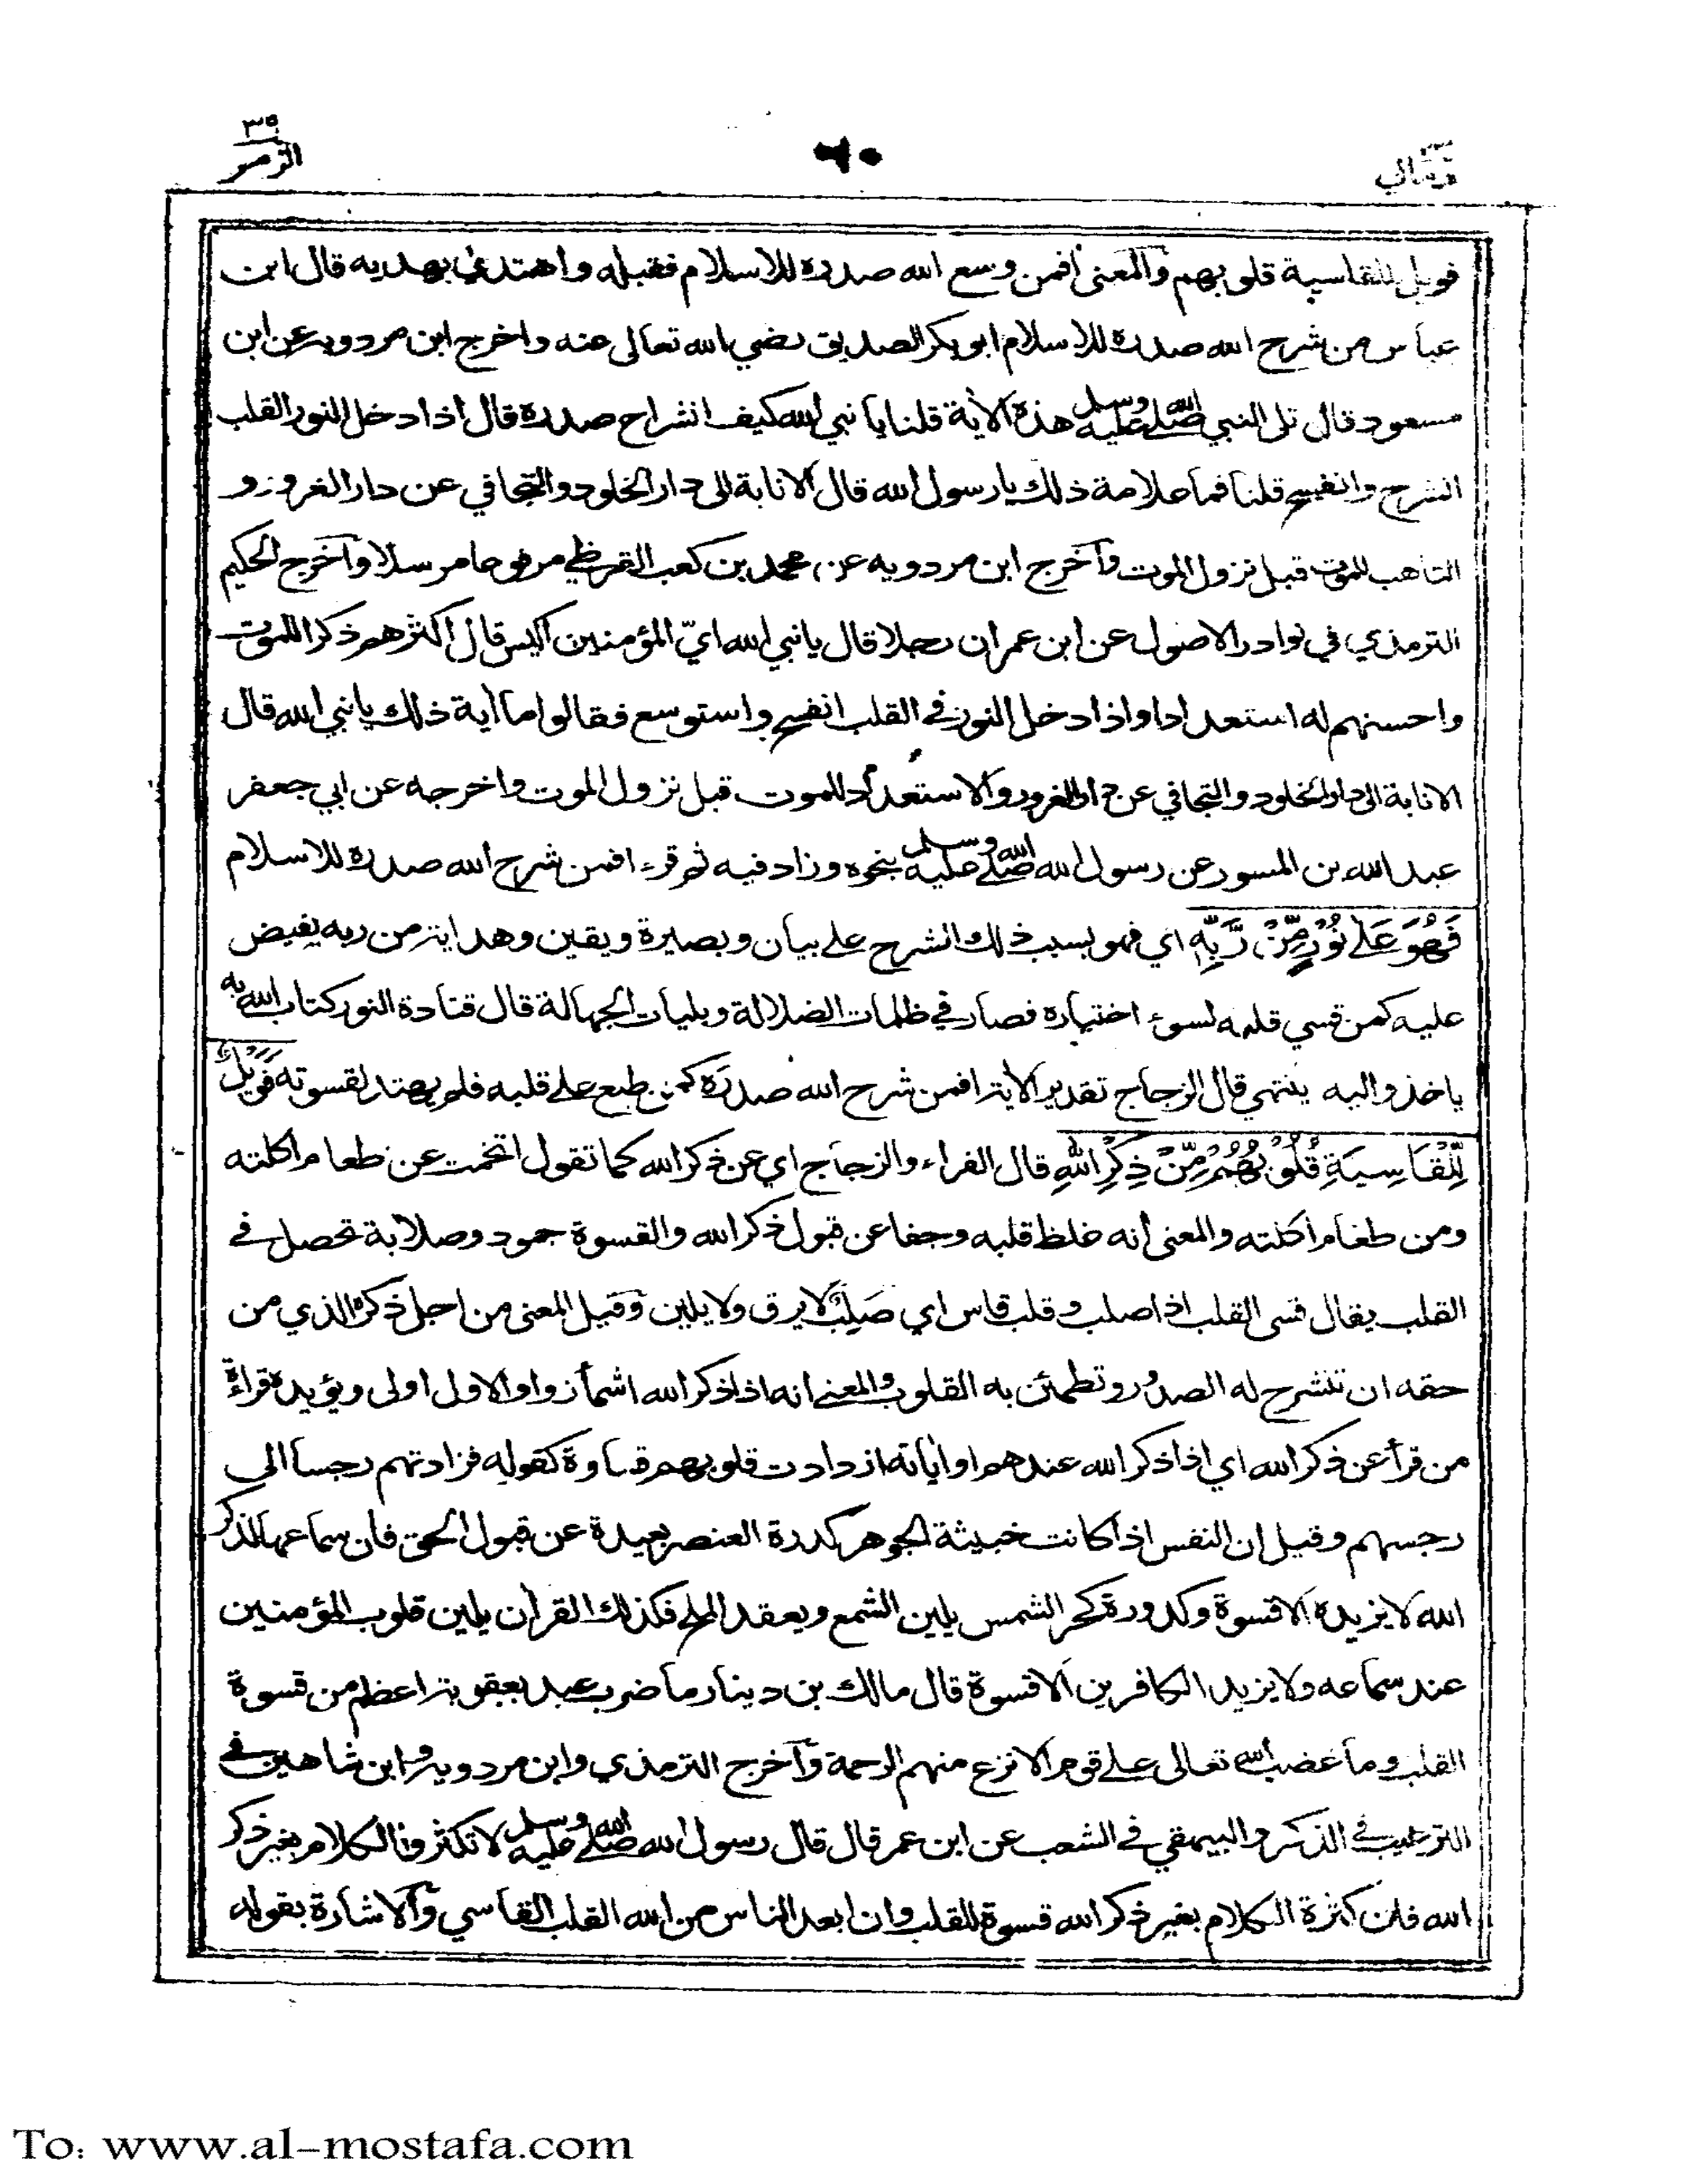 ٣٩
الزمر
٦٠
فويل للقاسية قلوبهم والمعنى أفمن وسع الله صدره للاسلام فقبله واهتدى بهديه قال ابن
عباس من شرح الله صدره للاسلام ابو بكر الصديق رضي الله تعالى عنه واخرج ابن مردويه عن ابن
مسعود قال تلى النبي صلى الله عليه وسلم هذه الآية قلنا يا نبي الله كيف انشراح صدره قال اذا دخل النور القلب
انشرح وانفسح قلنا فما علامة ذلك يا رسول الله قال الانابة الى دار الخلود والتجافي عن دار الغرور و
التاهب للموت قبل نزول الموت وآخرج ابن مردويه عن محمد بن كعب القرظي مرفوعا مرسلا وآخرج الحكيم
الترمذي في نوادر الاصول عن ابن عمر ان رجلا قال يا نبي الله ايّ المؤمنين اكيس قال اكثرهم ذكرا للموت
واحسنهم له استعدادا واذا دخل النور في القلب انفسح واستوسع فقالوا ما آية ذلك يا نبي الله قال
الانابة الى دار الخلود والتجافي عن دار الغرور والاستعداد للموت قبل نزول الموت واخرجه عن ابي جعفر
عبد الله بن المسور عن رسول الله صلى الله عليه وسلم بنحوه وزاد فيه ثم قرء افمن شرح الله صدره للاسلام
فَهُوَ عَلٰى نُوْرٍ مِّنْ رَّبِّهٖ اي فهو بسبب ذلك الشرح على بيان وبصيرة ويقين وهداية من ربه يفيض
عليه كمن قسي قلبه لسوء اختياره فصار في ظلمات الضلالة وبليات الجهالة قال قتادة النور كتاب الله به
ياخذ واليه ينتهي قال الزجاج تقدير الآية افمن شرح الله صدره كمن طبع على قلبه فلم يهتد لقسوته فَوَيْلٌ
لِّلْقَاسِيَةِ قُلُوْبُهُمْ مِّنْ ذِكْرِ اللهِ قال الفراء والزجاج اي عن ذكر الله كما تقول اتخمت عن طعام اكلته
ومن طعام اكلته والمعنى أنه غلظ قلبه وجفا عن قبول ذكر الله والقسوة جمود وصلابة تحصل في
القلب يقال قسى القلب اذا صلب وقلب قاس اي صَلِبٌ لا يرق ولا يلين وقيل المعنى من اجل ذكره الذي من
حقه ان تنشرح له الصدور وتطمئن به القلوب والمعنى انه اذا ذكر الله اشمأزوا والاول اولى ويؤيده قراءة
من قرأ عن ذكر الله اي اذا ذكر الله عندهم او آياته ازدادت قلوبهم قساوة كقوله فزادتهم رجسا الى
رجسهم وقيل ان النفس اذا كانت خبيثة الجوهر كدرة العنصر بعيدة عن قبول الحق فان سماعها لذكر
الله لا يزيده الا قسوة وكدورة كحر الشمس يلين الشمع ويعقد الملح فكذلك القرآن يلين قلوب المؤمنين
عند سماعه ولا يزيد الكافرين الا قسوة قال مالك بن دينار ما ضرب عبد بعقوبة اعظم من قسوة
القلب وما غضب الله تعالى على قوم الا نزع منهم الرحمة وآخرج الترمذي وابن مردويه وابن شاهين في
الترغيب في الذكر والبيهقي في الشعب عن ابن عمر قال قال رسول الله صلى الله عليه وسلم لا تكثروا الكلام بغير ذكر
الله فان كثرة الكلام بغير ذكر الله قسوة للقلب وان ابعد الناس من الله القلب القاسي وآلاشارة بقوله
To: www.al-mostafa.com